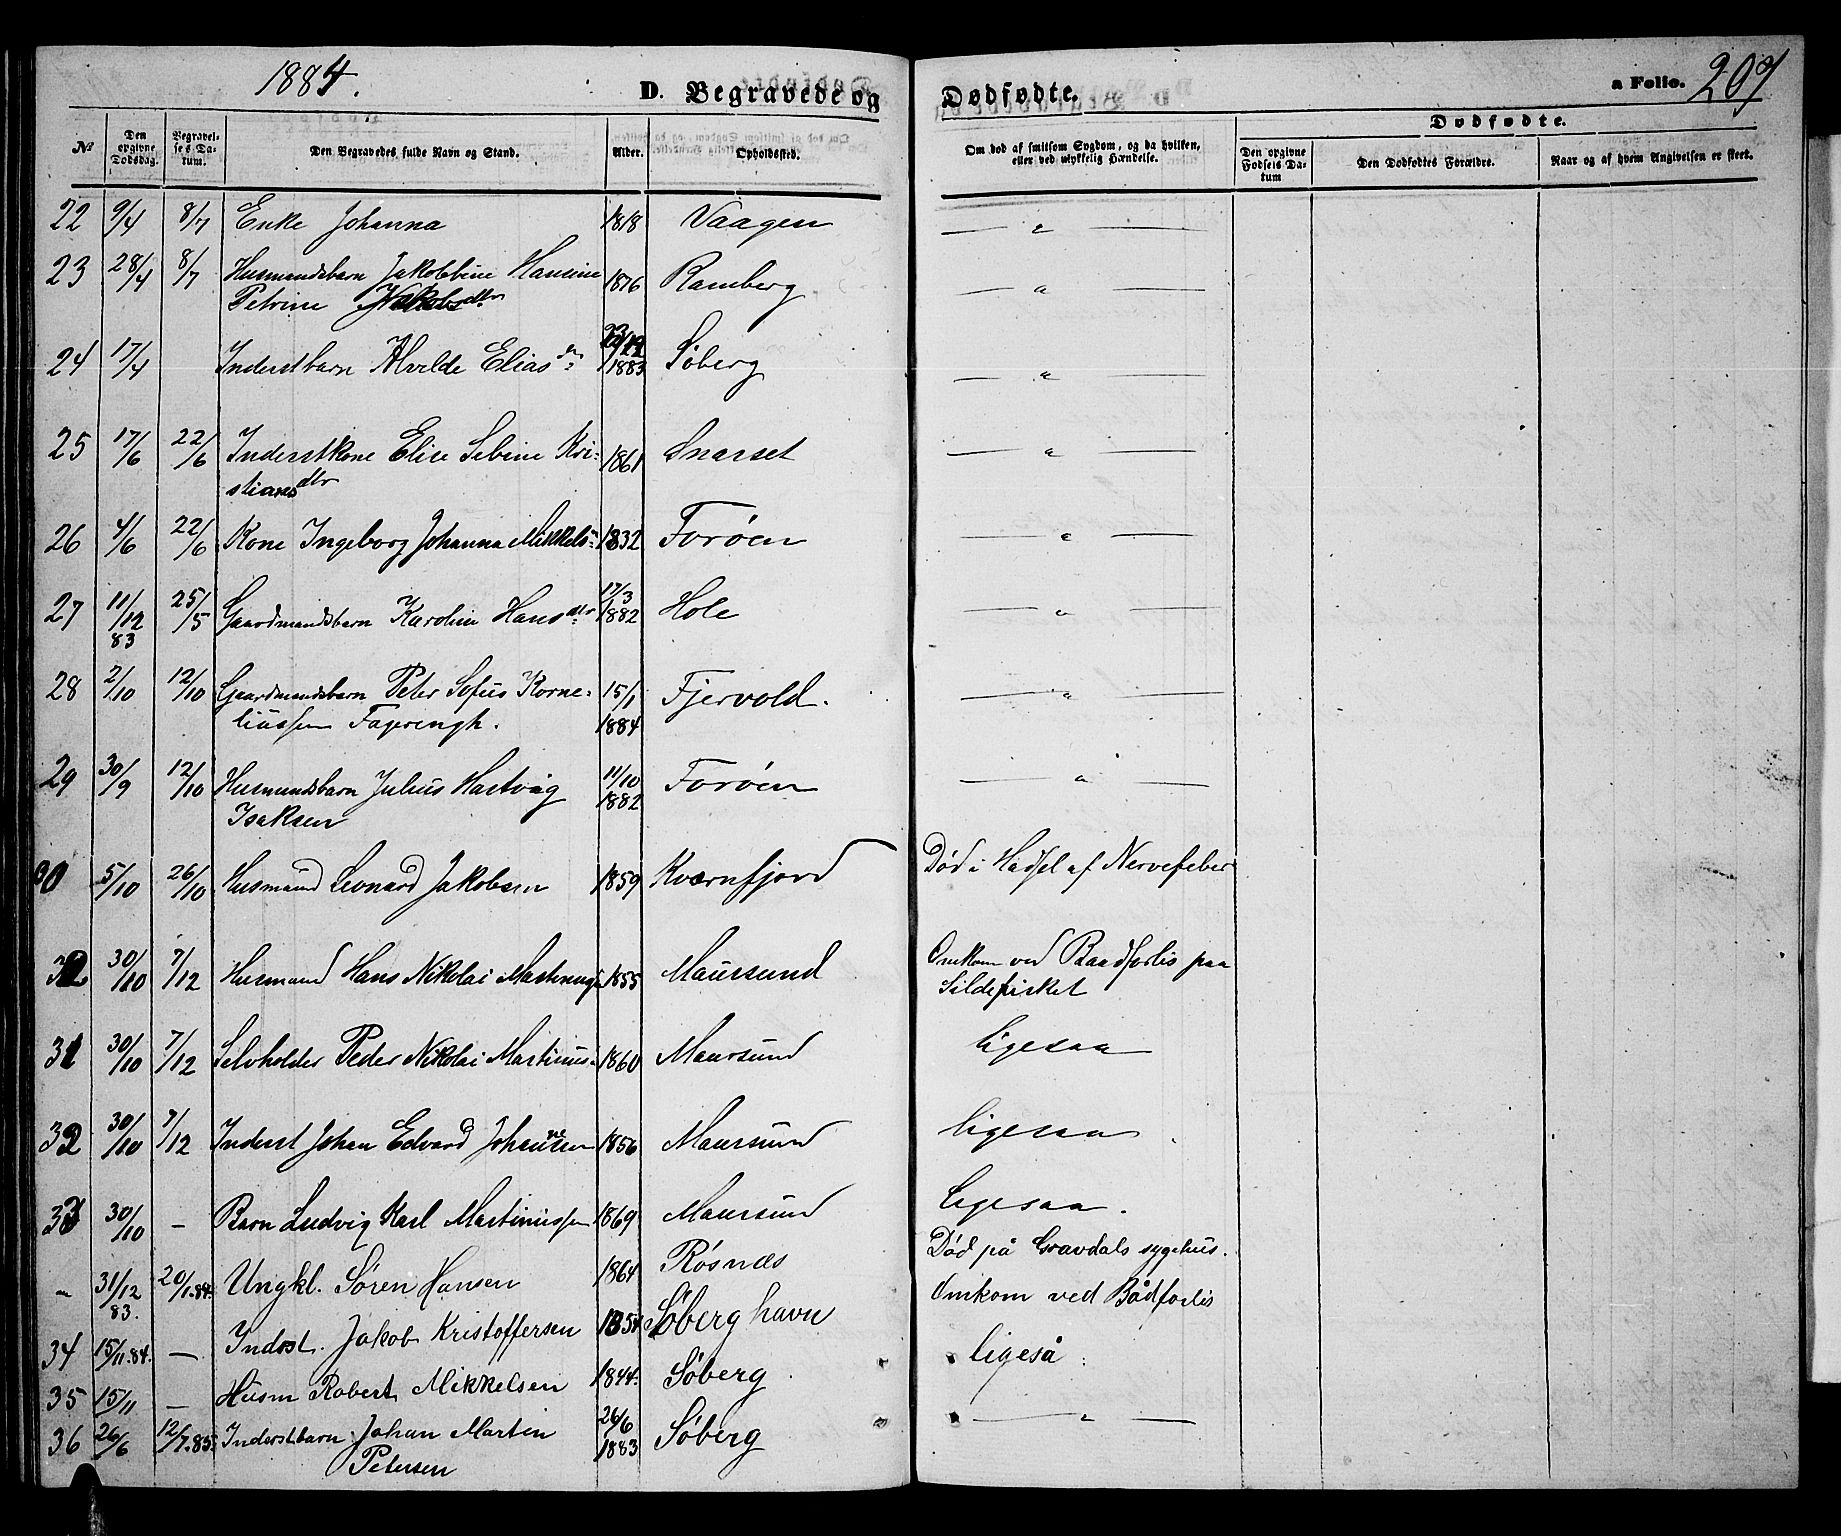 1884.
D. Begravede og
Dødfødte.
a Folio. 207
Dødfødte.
No
Den opgivne Dødsdag.
Begravelses Datum.
Den Begravedes fulde Navn og Stand.
Alder.
Opholdssted.
Om død af smitsom Sygdom, og da hvilken, eller ved ulykkelig Hændelse.
Den opgivne Fødsels Datum
Den Dødfødtes Forældre.
Naar og af hvem Angivelsen er skeet.
22 9/4 8/7 Enke Johanna 1818 Vaagen — " —
23 28/4 8/7 Husmandsbarn Jakobbine Hansine 1876 Ramberg — " —
Petrine Jakobsdtr
24 17/4 Inderstbarn Alvilde Elias dtr 1883 Søberg — " —
25 17/6 22/6 Inderstkone Elise Sebine Kri- 1861 Snarset — " —
stiansdtr
26 4/6 22/6 Kone Ingeborg Johanna Mikkels- 1832 Forøen — " —
27 11/12 83 25/5 Gaardmandsbarn Karolin Hansdtr 17/3 1882 Hole — " —
28 2/10 12/10 Gaardmandsbarn Peter Sofus Korne- 15/1 1884 Fjervold. — " —
liussen Fagerengh.
29 30/9 12/10 Husmandsbarn Julius Hartvig 11/10 1882 Forøen — " —
Isaksen
30 5/10 26/10 Husmand Leonard Jakobsen 1859 Kværnfjord Død i Hadsel af Nervefeber
30/10 7/12 Husmand Hans Nikolai Martinus 1855 Maursund Omkom ved Baadforlis paa
Sildefisket
31 30/10 7/12 Selvholder Peder Nikolai Martinus- 1860 Maursund ligesaa
32 30/10 7/12 Inderst Johan Edvard Johansen 1856 Maursund ligesaa
33 30/10 — Barn Ludvig Karl Martinussen 1869 Maursund Ligesaa.
– 31/12 83. 20/1.84. Ungkl. Sören Hansen 1864 Røsnæs Död på Gravdals sygehus.
34 15/11.84. — Indrst. Jakob Kristoffersen 1854 Søberghavn Omkom ved Bådforlis
35 15/11 — Husm Robert Mikkelsen 1844. Søberg ligeså
36 26/6 12/7.85. Inderstbarn Johan Martin 26/6 1883 Søberg — " —
Petersen